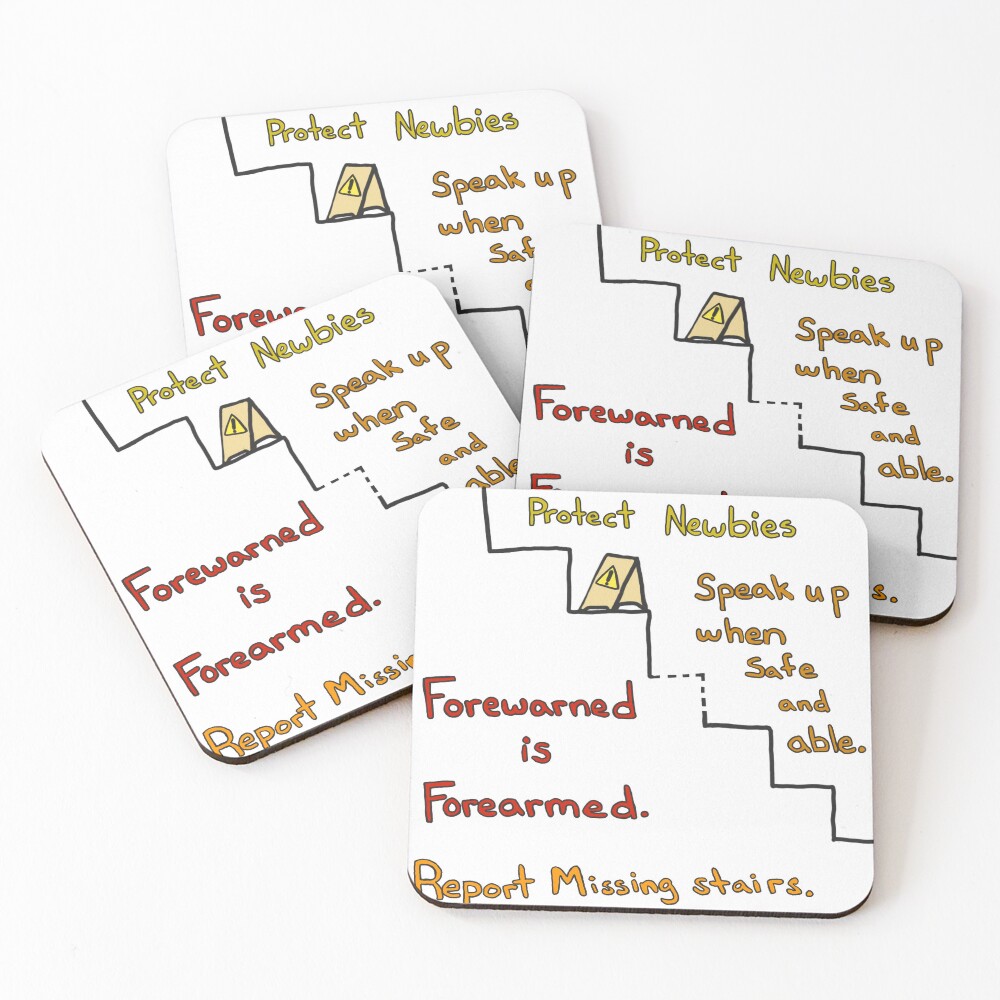 Protect Newbies
Speak up
when
Saf
Forew
Protect Newbies
Speak up
when
Safe
and
able.
Forewarned
is
s.
Protect Newbies
Speak up
when
Safe
and
able
Forewarned
is
Forearmed.
Report Missin
Protect Newbies
Speak up
when
Safe
and
able.
Forewarned
is
Forearmed.
Report Missing stairs.